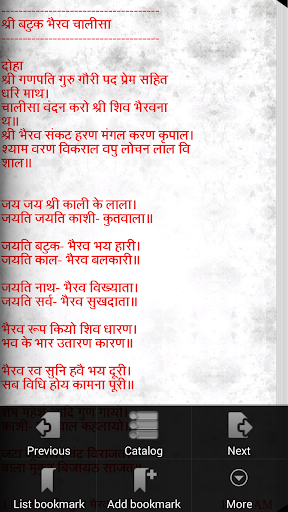 श्री बटुक भैरव चालीसा
दोहा
श्री गणपति गुरु गौरी पद प्रेम सहित
धरि माथ।
चालीसा वंदन करो श्री शिव भैरवना
थ॥
श्री भैरव संकट हरण मंगल करण कृपाल।
श्याम वरण विकराल वपु लोचन लाल वि
शाल॥
जय जय श्री काली के लाला।
जयति जयति काशी- कुतवाला॥
जयति बटुक- भैरव भय हारी।
जयति काल- भैरव बलकारी॥
जयति नाथ- भैरव विख्याता।
जयति सर्व- भैरव सुखदाता॥
भैरव रूप कियो शिव धारण।
भव के भार उतारण कारण॥
भैरव रव सुनि हवै भय दूरी।
सब विधि होय कामना पूरी॥
Previous
Catalog
Next
List bookmark
Add bookmark
More